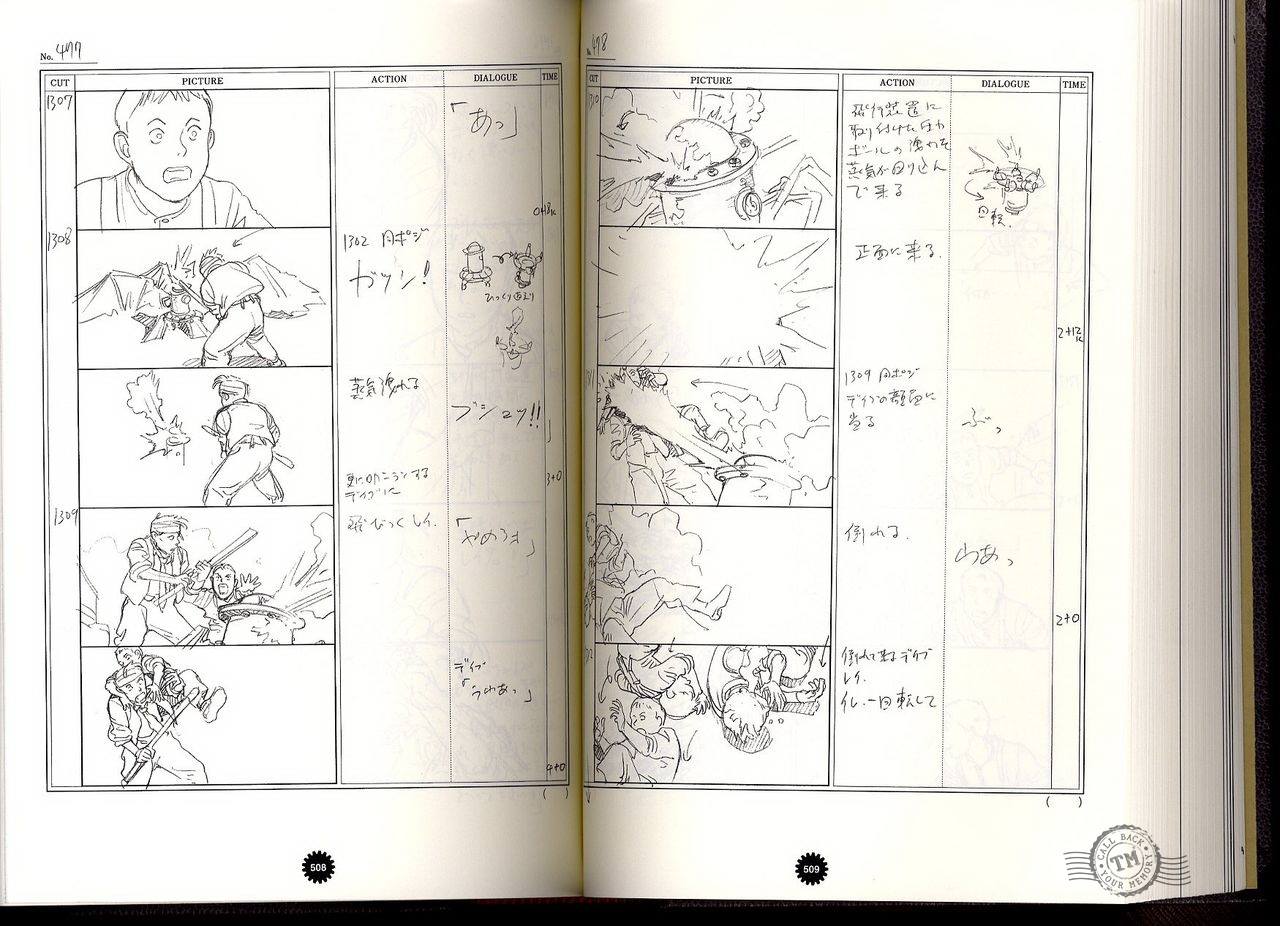 No. 477
CUT PICTURE ACTION DIALOGUE TIME
1307
「あっ」
0+18k
1308
1302 同ポジ
ガッン!
ひっくり返り
蒸気湧れる
ブシュッ!!
デイブに
3+0
1309
飛びつくレイ.
「やめろヨ」
デイブ
「うわあっ」
4+0
( )
508
478
CUT PICTURE ACTION DIALOGUE TIME
飛行装置に
取り付けた圧力
ボールの湧れた
蒸気が回り込ん
で来る
回転.
正面に来る.
2+12k
1309 同ポジ
デイブの顔面に
当る
ぶっ
倒れる.
らあっ
2+0
倒れて来るデイブ
レイ.
レイ.一回転して
( )
509
CALL BACK
TM
YOUR MEMORY